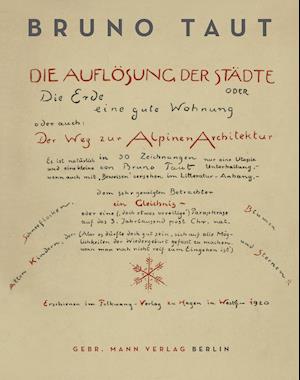 BRUNO TAUT
DIE AUFLÖSUNG DER STÄDTE
ODER
Die Erde
eine gute Wohnung
oder auch:
Der Weg zur Alpinen Architektur
Es ist natürlich in 30 Zeichnungen nur eine Utopie
und eine kleine von Bruno Taut Unterhaltung,-
wenn auch mit „Beweisen" versehen im Litteratur-Anhang,-
dem sehr geneigten Betrachter
ein Gleichnis-
oder eine (doch etwas voreilige) Paraphrase
auf das 3. Jahrtausend post Chr. nat.
Allen Kindern, den
Blumen
und Sternen
(Aber es dürfte doch gut sein, sich auf alle Mög-
lichkeiten der Wiedergeburt gefasst zu machen,
wenn man noch nicht reif zum Eingehen ist)
Erschienen im Folkwang-Verlag zu Hagen im Westf. 1920
GEBR. MANN VERLAG BERLIN